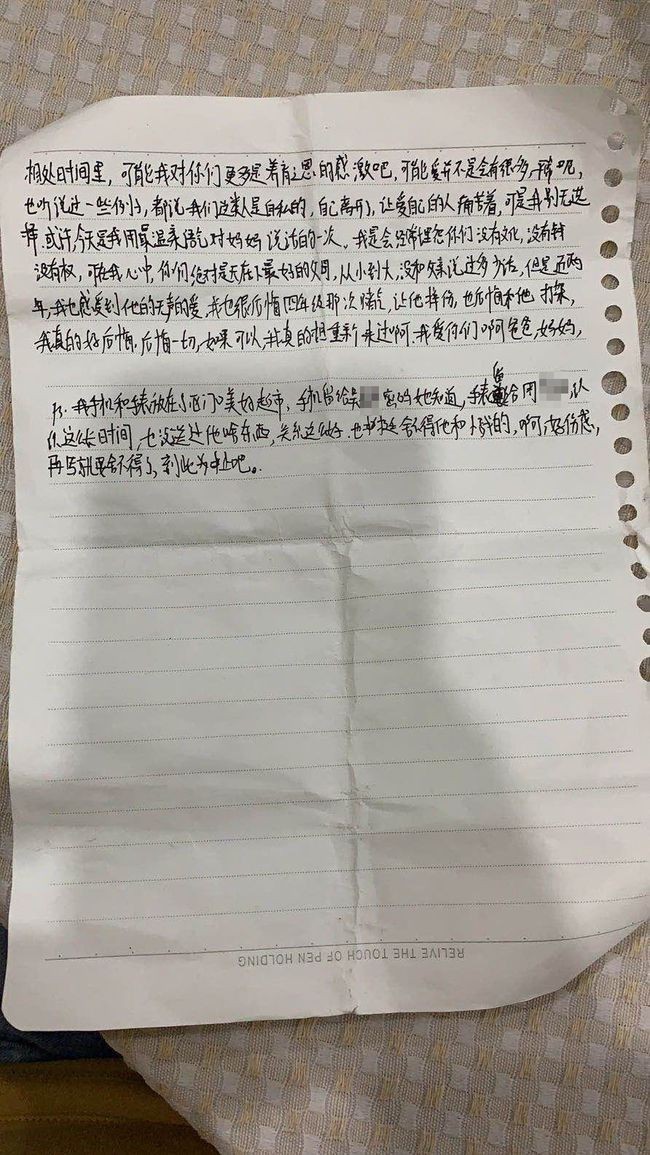 相处时间里，可能我对你们更多是养育之恩的感激吧，可能爱并不是会有很多，唏呢，
也听说过一些例子，都说我们这类人是自私的，自己离开了，让爱自己的人痛苦着，可是我别无选
择，或许，今天是我用最温柔语气对妈妈说话的一次，我是会经常埋怨你们没有文化，没有钱
没有权，可在我心中，你们绝对是天底下最好的父母，从小到大，没和父亲说过多少话，但是近两
年，我也感受到他的无声的爱，我也很后悔四年级那次赌气，让他摔伤，也后悔和他打架，
我真的好后悔，后悔一切，如果可以，我真的想重新来过啊，我爱你们啊爸爸，妈妈，
Ps. 我手机和手表放在小区门口美好超市，手机留给吴 密码她知道，手表留给周 ，认
识这么长时间，也没送过他啥东西，关系这么好，也挺舍不得他和小钱的，啊，好伤感，
再写就更舍不得了，到此为止吧。
RELIVE THE TOUCH OF PEN HOLDING